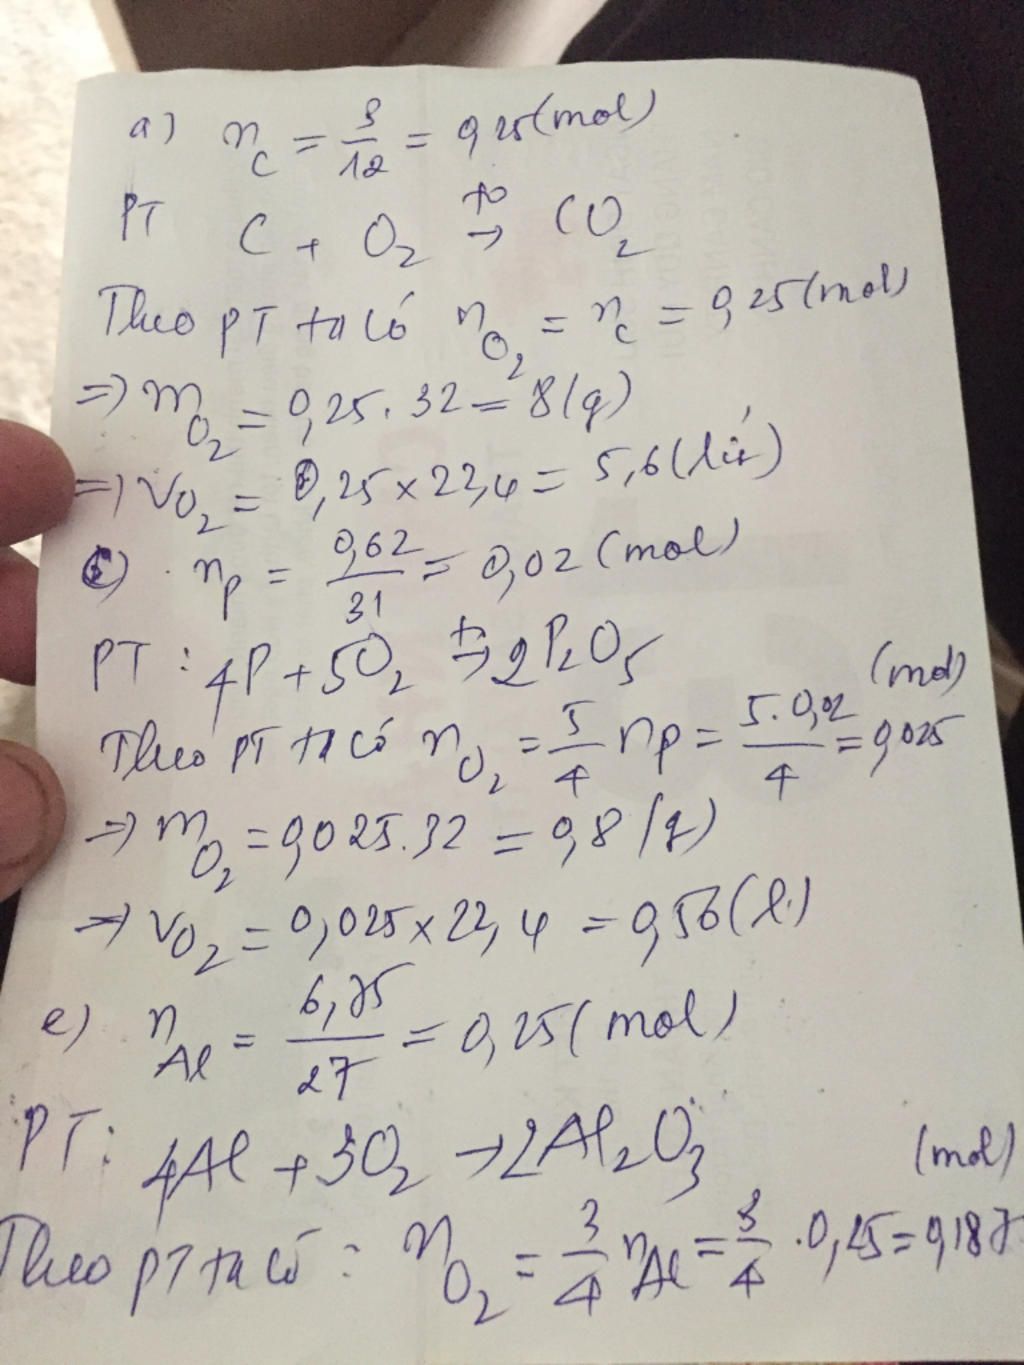 a) n_C = 3/12 = 0,25 (mol)
PT C + O₂ t⁰→ CO₂
Theo PT ta có n_O₂ = n_C = 0,25 (mol)
=> m_O₂ = 0,25 . 32 = 8 (g)
=> V_O₂ = 0,25 × 22,4 = 5,6 (lít)
c) n_P = 0,62/31 = 0,02 (mol)
PT : 4P + 5O₂ t→ 2P₂O₅
Theo PT ta có n_O₂ = 5/4 n_P = 5.0,02/4 = 0,025 (mol)
=> m_O₂ = 0,025.32 = 0,8 (g)
=> V_O₂ = 0,025 × 22,4 = 0,56 (l)
e) n_Al = 6,75/27 = 0,25 (mol)
PT: 4Al + 3O₂ → 2Al₂O₃
Theo PT ta có : n_O₂ = 3/4 n_Al = 3/4 . 0,25 = 0,187 (mol)